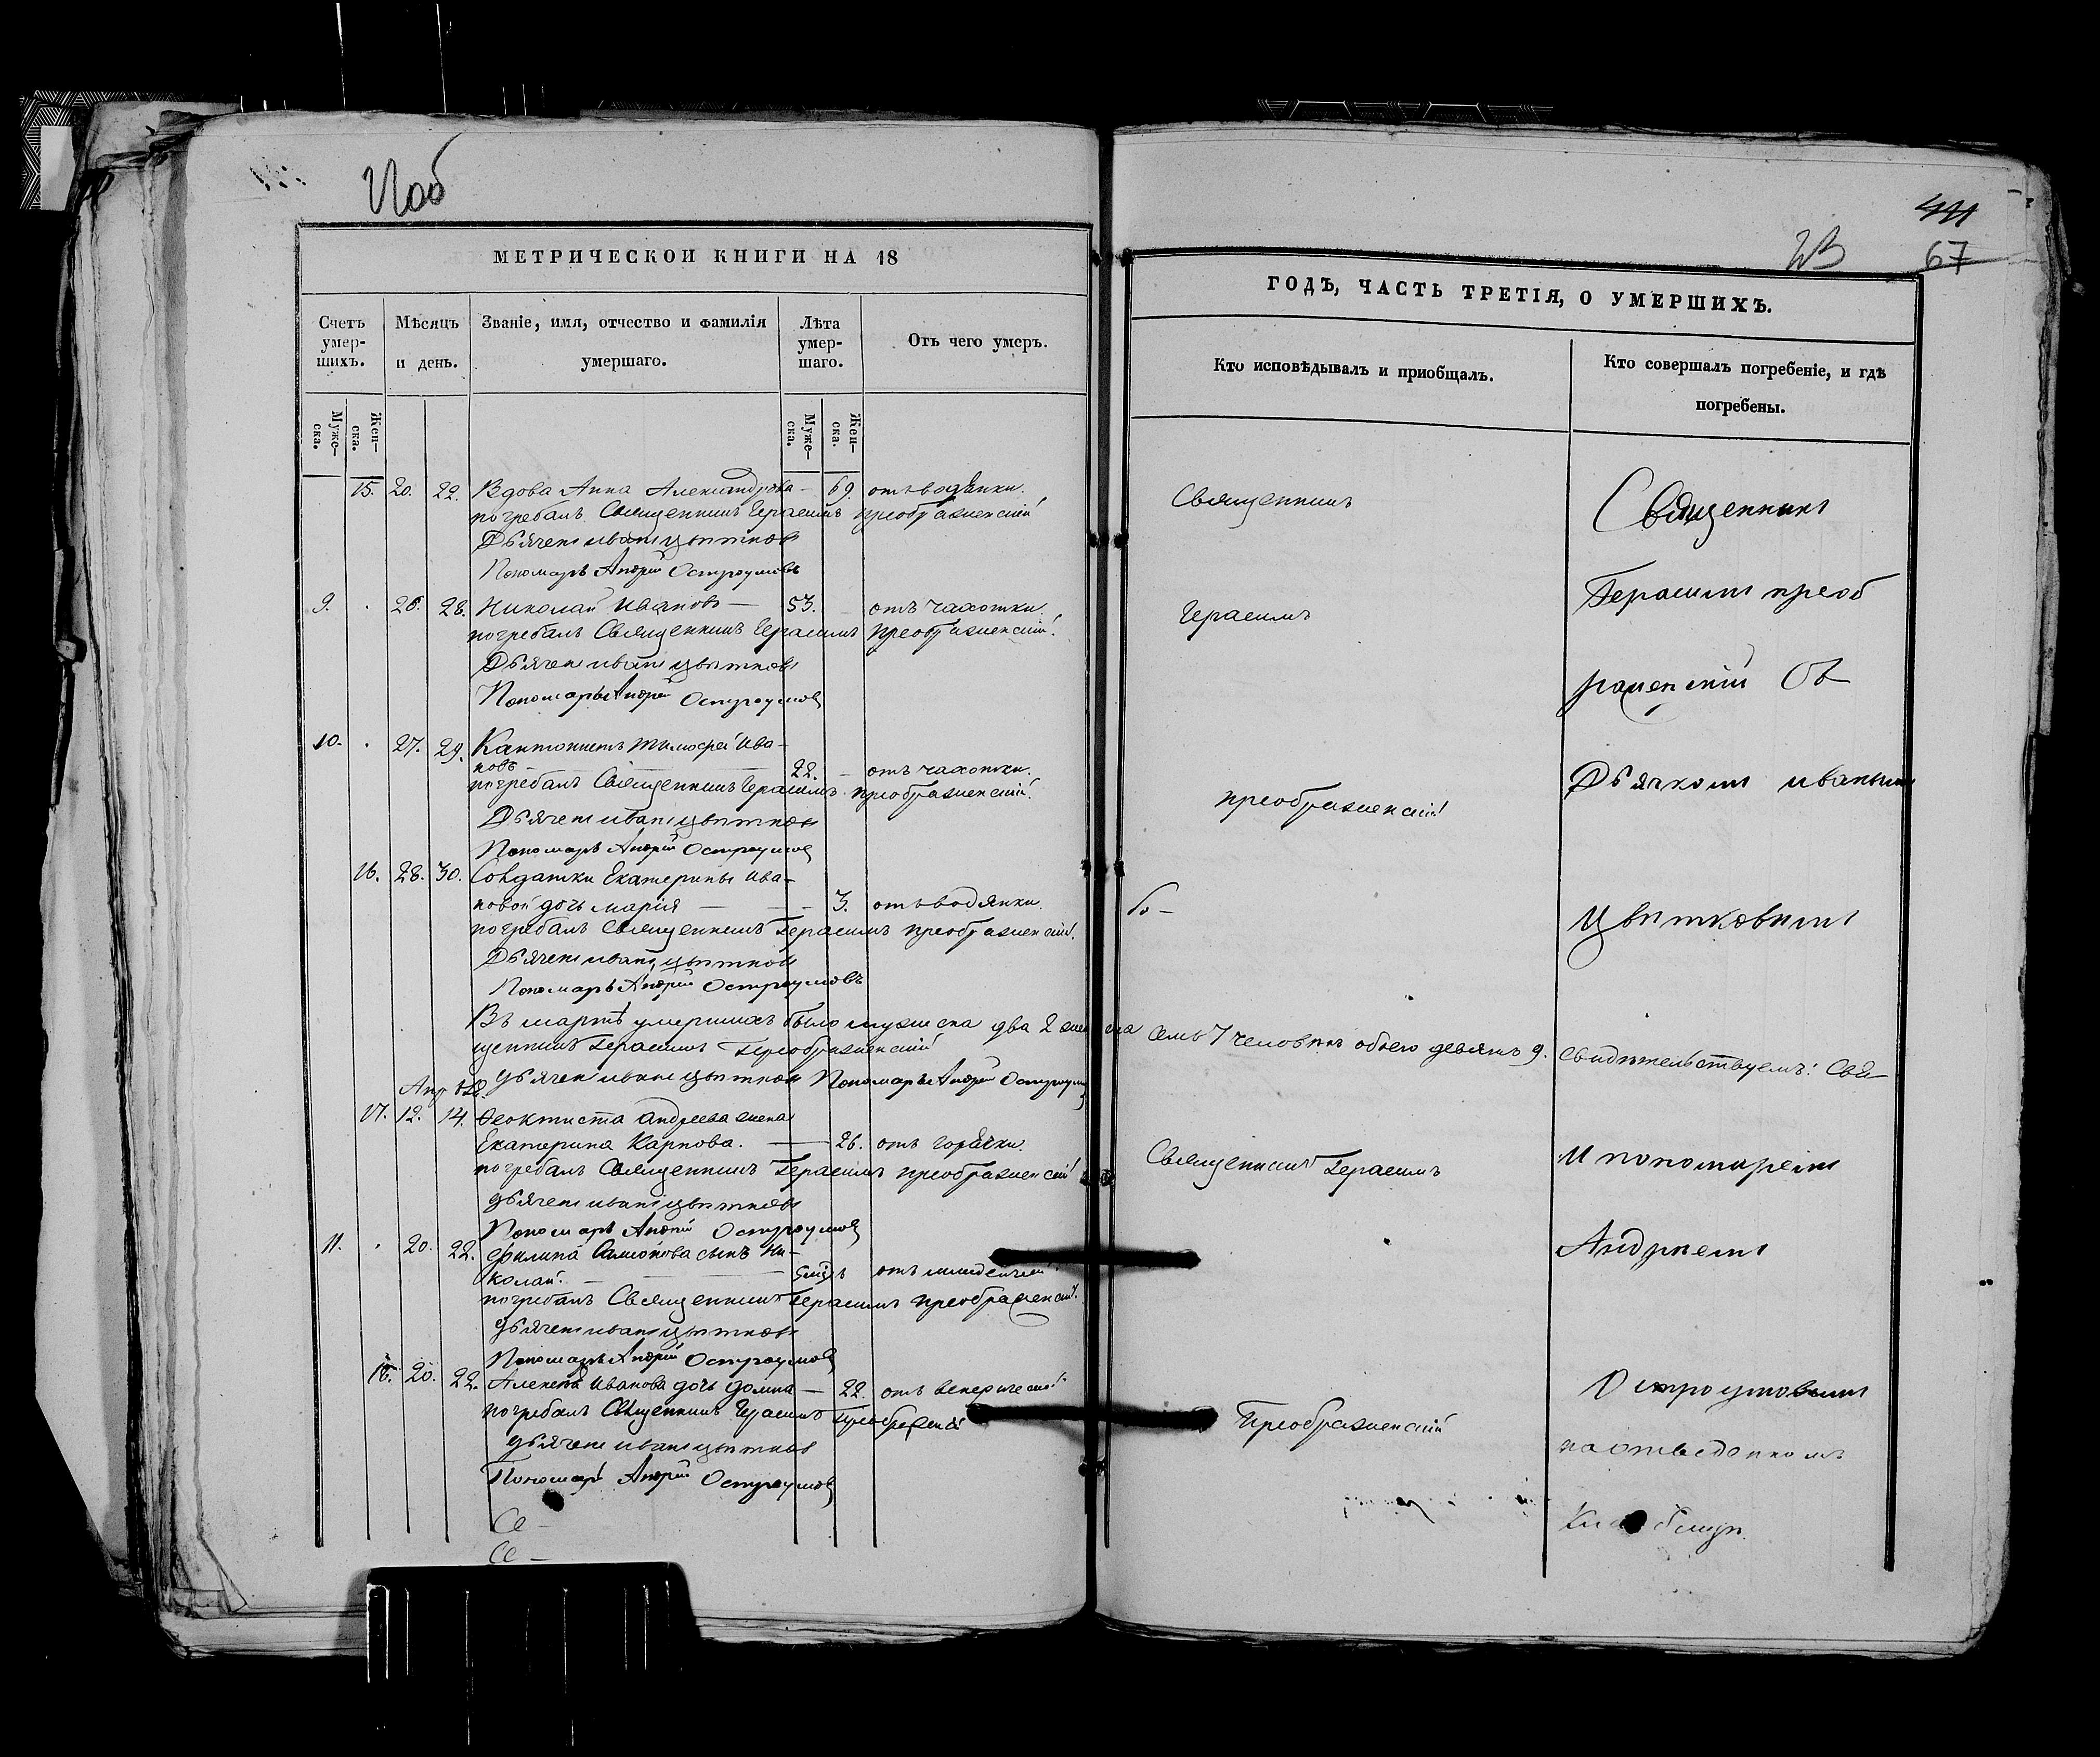 441
23
67
МЕТРИЧЕСКОЙ КНИГИ НА 18
Счетъ умер-шихъ.
Мѣсяцъ и день.
Званіе, имя, отчество и фамилія умершаго.
Лѣта умер-шаго.
Отъ чего умеръ.
Муже-ска.
Жен-ска.
Муже-ска.
Жен-ска.
15. 20. 22. Вдова Анна Александрова — 69. отъ водянки.
погребалъ Священникъ Герасимъ Преображенскій
Дьячекъ Иванъ Цвѣтковъ
Пономарь Андрей Остроумовъ
9. 26. 28. Николай Ивановъ — 53. отъ чахотки.
погребалъ Священникъ Герасимъ Преображенскій.
Дьячекъ Иванъ Цвѣтковъ
Пономарь Андрей Остроумовъ
10. 27. 29. Кантонистъ Тимофей Ива-
новъ — 22. отъ чахотки.
погребалъ Священникъ Герасимъ Преображенскій.
Дьячекъ Иванъ Цвѣтковъ
Пономарь Андрей Остроумовъ
16. 28. 30. Солдатки Екатерины Ива-
новой дочь Марія — 3. отъ водянки.
погребалъ Священникъ Герасимъ Преображенскій.
Дьячекъ Иванъ Цвѣтковъ
Пономарь Андрей Остроумовъ
Въ мартѣ умершихъ было мужеска два 2 женска семь 7 человѣкъ обоего девять 9. свидѣтельствуемъ: Свя-
щенникъ Герасимъ Преображенскій
дьячекъ Иванъ Цвѣтковъ Пономарь Андрей Остроумовъ
17. 12. 14. Феоктиста Андреева жена
Екатерина Карпова. — 26. отъ горячки.
погребалъ Священникъ Герасимъ Преображенскій
дьячекъ Иванъ Цвѣтковъ
Пономарь Андрей Остроумовъ
11. 20. 22. Филипа Самойлова сынъ Ни-
колай. — отъ младенческой
погребалъ Священникъ Герасимъ Преображенскій.
дьячекъ Иванъ Цвѣтковъ
Пономарь Андрей Остроумовъ
18. 20. 22. Иванова дочь Домна — 22. отъ
погребалъ Священникъ Герасимъ
дьячекъ Иванъ Цвѣтковъ
Пономарь Андрей Остроумовъ
ГОДЪ, ЧАСТЬ ТРЕТІЯ, О УМЕРШИХЪ.
Кто исповѣдывалъ и приобщалъ.
Кто совершалъ погребеніе, и гдѣ погребены.
Священникъ
Герасимъ
преображенскій
Священникъ Герасимъ
Преображенскій
Священникъ
Герасимъ преоб
раженскій съ
Дьячкомъ Иваномъ
Цвѣтковымъ
и пономаремъ
Андреемъ
Остроумовымъ
на отведенномъ